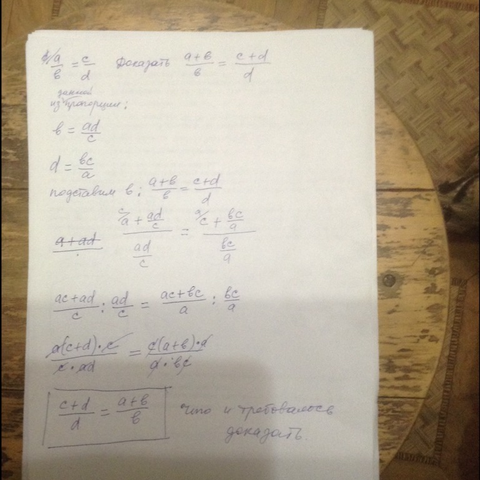 a/в = c/d Доказать (a+в)/в = (c+d)/d
данной
из пропорции:
в = ad/c
d = вc/a
подставим в: (a+в)/в = (c+d)/d
(a + ad/c)/(ad/c) = (c + вc/a)/(вc/a)
(ac+ad)/c : ad/c = (ac+вc)/a : вc/a
(a(c+d)·c)/(c·ad) = (c(a+в)·a)/(a·вc)
(c+d)/d = (a+в)/в что и требовалось
доказать.